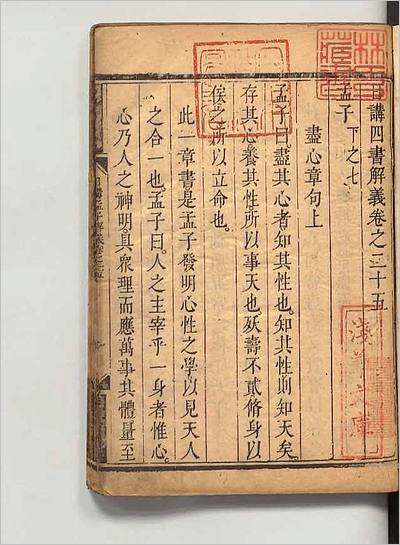 日講四書解義卷之二十五
孟子 下之七
盡心章句上
孟子曰盡其心者知其性也知其性則知天矣
存其心養其性所以事天也殀壽不貳脩身以
俟之所以立命也
此一章書是孟子發明心性之學以見天人
之合一也孟子曰人之主宰乎一身者惟心
心乃人之神明具衆理而應萬事其體量至
淺草文庫